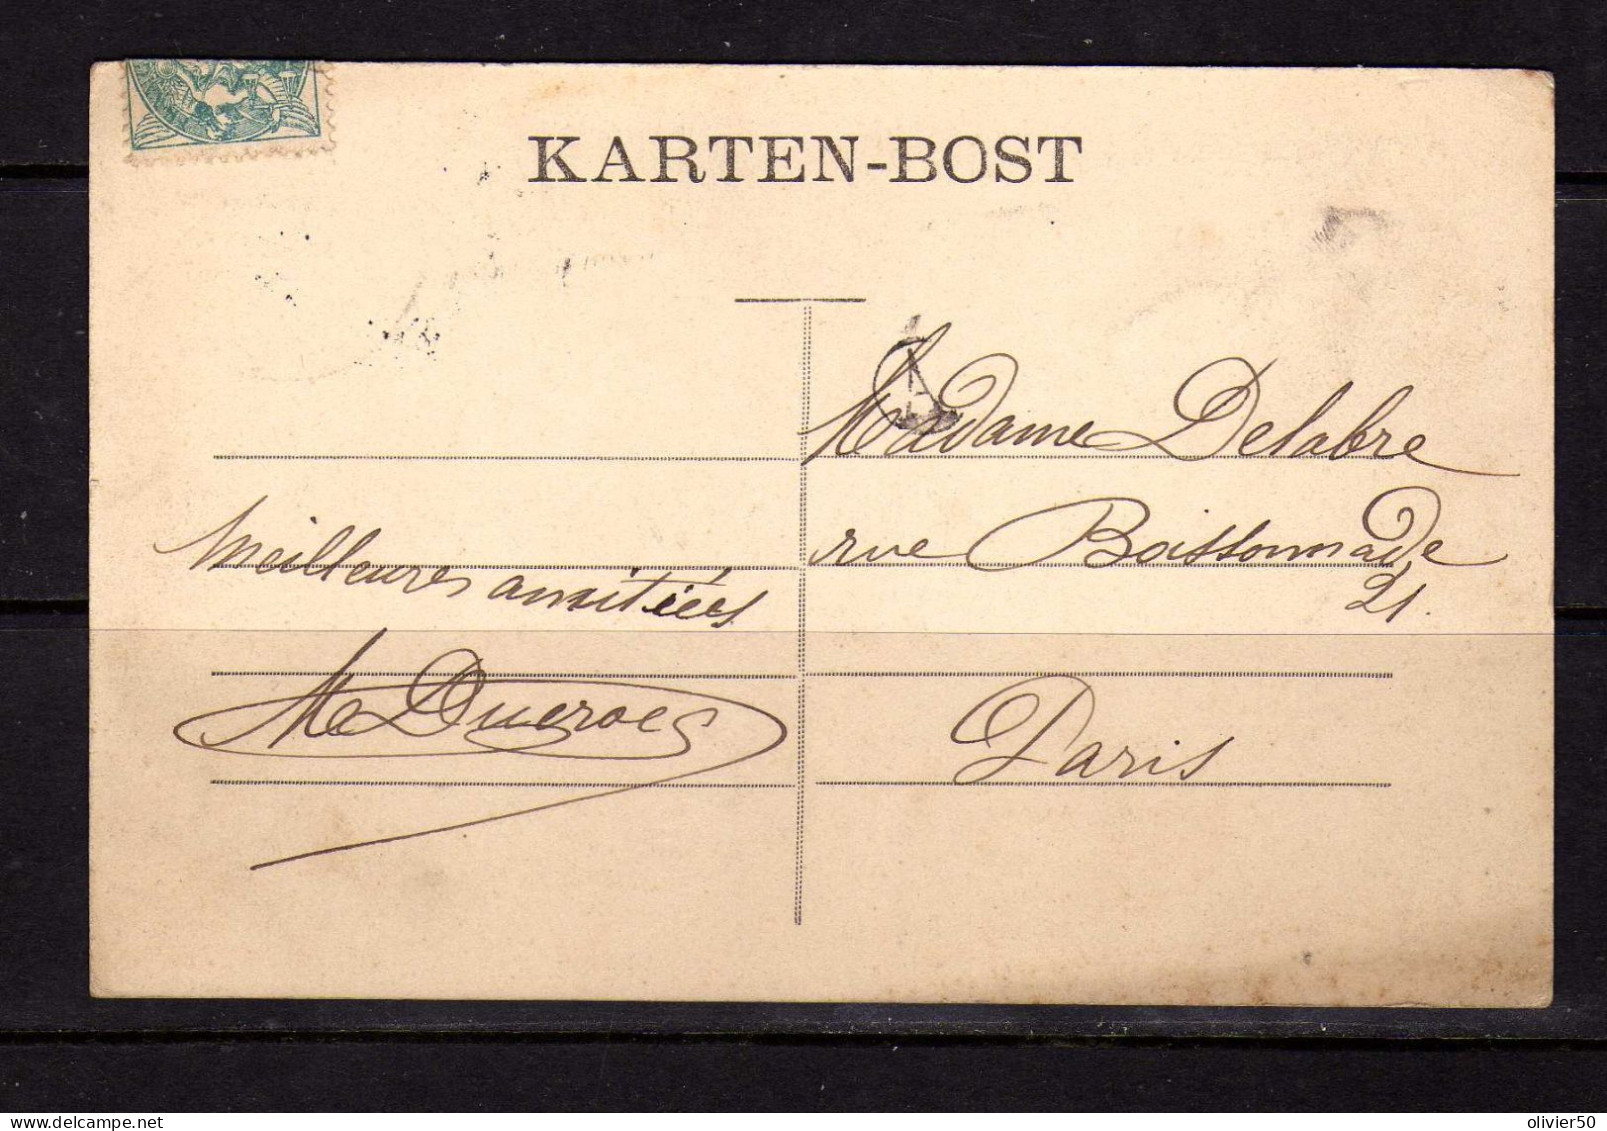 KARTEN-BOST
Madame Delabre
rue Boissonnade
21.
Paris
Meilleures amitiées
Me Ducroes
delcampe.net
olivier50